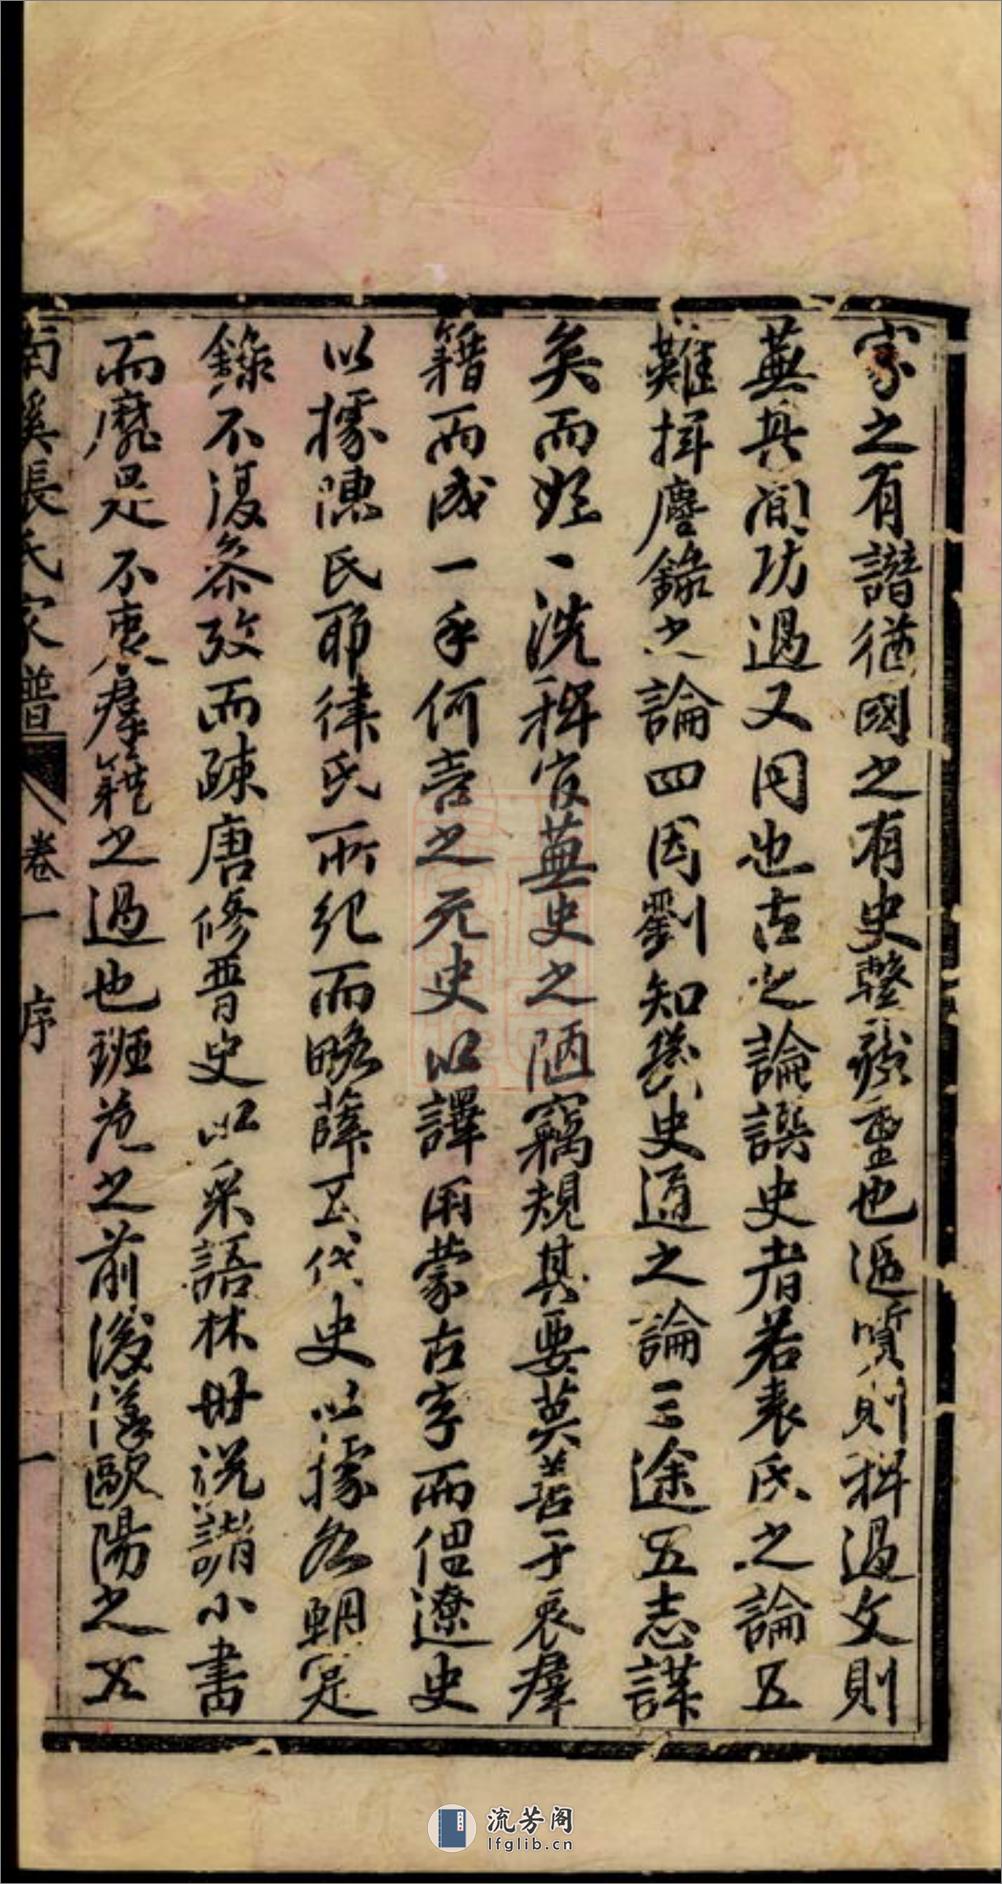 家之有譜猶國之有史難最重也過質則稗過文則
蕪其間功過又同也古之論譔史者若袁氏之論五
難揮麈錄之論四因劉知幾史通之論三途五志謀
矣而姪一洗稗官蕪史之陋竊規其要莫善于裒羣
籍而成一手何言之元史以譯用蒙古字而僵遼史
以據陳氏耶律氏所紀而略薛五代史以據各朝寔
錄不復叅攷而疎唐修晉史以采語林世說諸小書
而靡是不裒羣籍之過也班范之前後漢歐陽之五
南溪張氏家譜 卷一 序 一
流芳阁
lfglib.cn